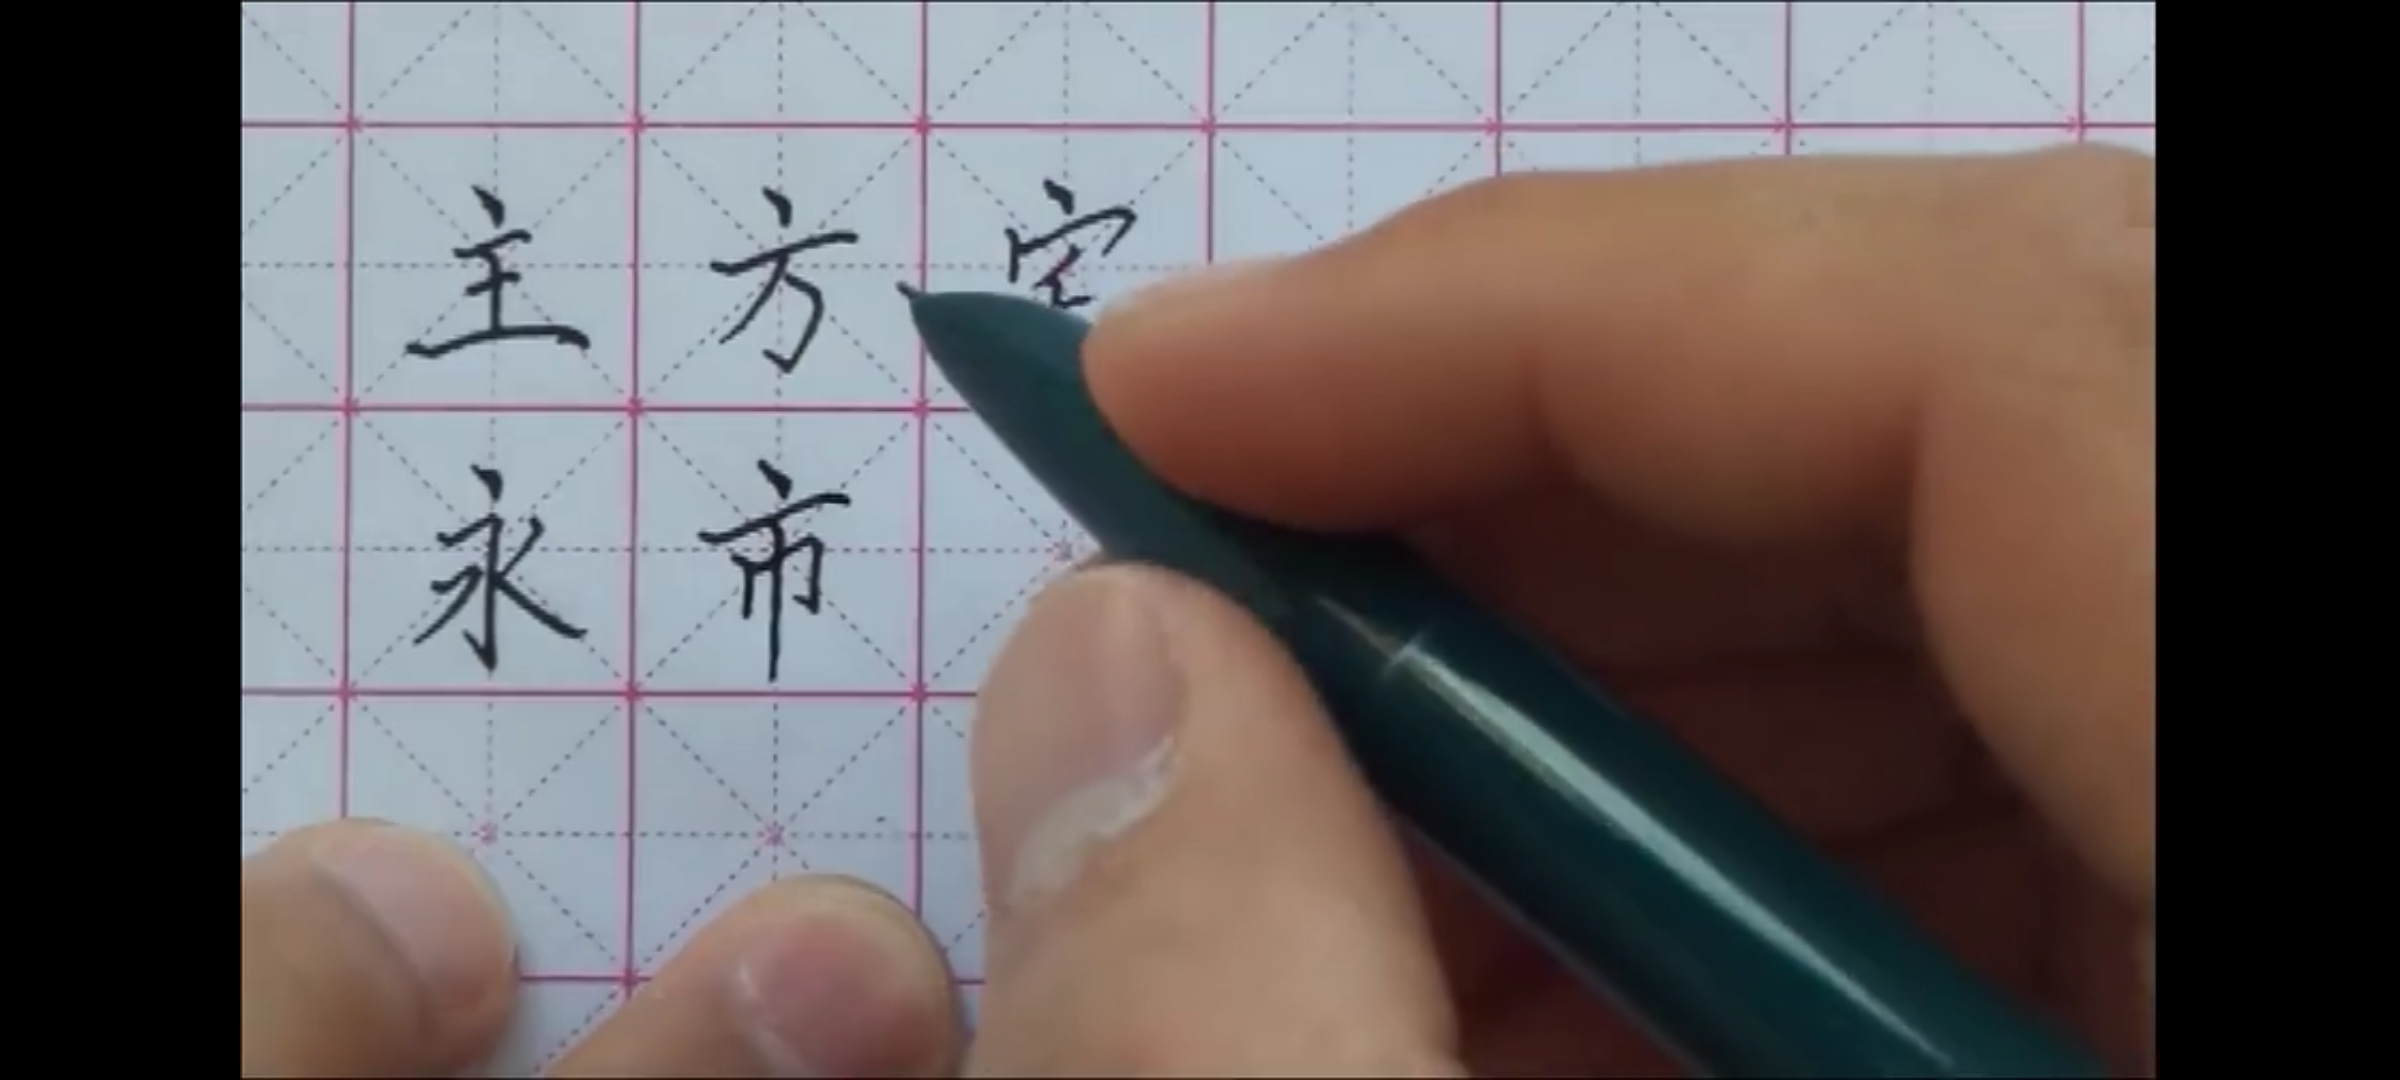 主方
永市